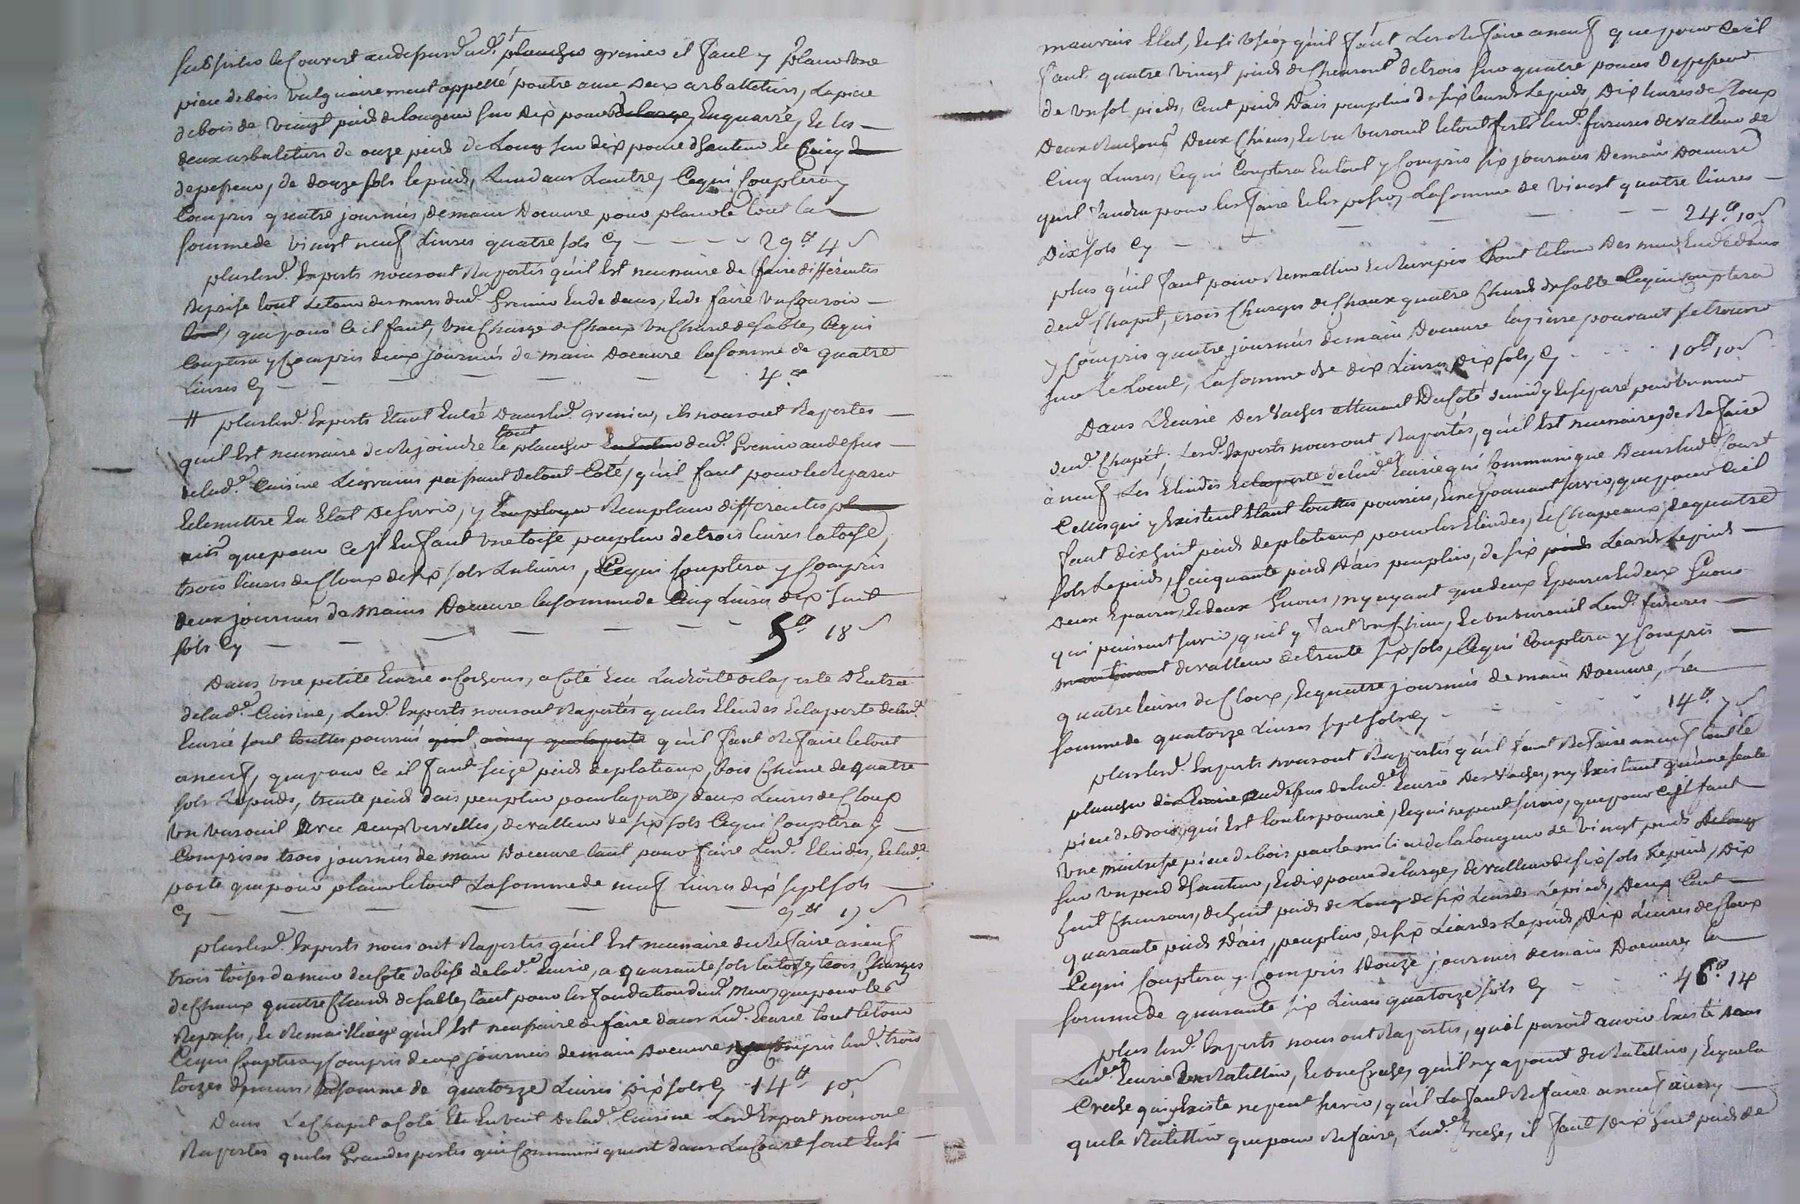 subsister le couvert au dessus dud. plancher grenier il faut y placer une
piece de bois vulgairement appellé poutre avec deux arballetiers, La piece
de bois de vingt pieds de longeur sur dix pouces de large, En quarré, Et les
deux arbaletiers de onze pieds de Long sur dix pouces d'hauteur et Cinq de
depesseur, de douze sols le pied, L'un dans L'autre, Ce qui Couptera y
Compris quatre journées de main Doeuvre pour placer le tout la
somme de vingt neuf Livres quatre sols Cy 29 ll 4 s
plus lesd. Experts nous ont Raportés qu'il Est necessaire de faire différentes
Reprise tout Letour des murs dud. Grenier En de dans, Et de faire un couroir
tout, que pour Ce il faut, une Charge de Chaux un Chard de sable, Ce qui
Couptera y Compris deux journées de main Doeuvre la somme de quatre
Livres Cy 4 ll
# plus lesd. Experts Etant Entré Dans led. grenier, ils nous ont Raportés
quil Est necessaire de Rejoindre tout le plancher dud. Grenier au dessus
de lad. Cuisine Les grains passant de tout Coté, qu'il faut pour le Reparer
Et le mettre En Etat De servir, y Employer Remplacer differentes
que pour Ce il En faut une toise peuplier de trois livres la toise,
trois livres de Cloux de six sols La livre, Ce qui Couptera y Compris
deux journées de mains Doeuvre la somme de Cinq Livres dix huit
sols Cy 5 ll 18 s
Dans une petite Ecurie a Cochons, a Coté Et a La droite de la porte D'Entrée
de lad. Cuisine, Lesd. Experts nous ont Raportés que les Eleindes Et la porte de lad.
Ecurie sont touttes pourries qu'il faut Refaire le tout
a neuf, que pour Ce il faut seize pieds de plateaux, bois Chene de quatre
sols Le pieds, trente pieds d'ais peuplier pour la porte, deux Livres de Cloux
un varouil avec deux vervelles, de valleur de six sols Ce qui Couptera y
Comprises trois journées de main Doeuvre tant pour faire Lesd. Eleindes, Et lad.
porte que pour placer le tout La somme de neuf Livres dix sept sols
Cy 9 ll 17 s
plus lesd. Experts nous ont Raportés qu'il Est necessaire de Refaire a neuf
trois toises de mur du Coté de bise de lad. Ecurie, a quarante sols la toise, trois Charges
de Chaux quatre Chards de sable, tant pour les fondations dud. Mur, que pour les
Reprises, Et Remaillage qu'il Est necessaire de faire dans Lad. Ecurie tout letour
Ce qui Couptera y Compris deux journées de main Doeuvre Compris lesd. trois
toizes de murs, La somme de quatorze Livres Dix sols Cy 14 ll 10 s
Dans Le Chapit a Coté Et En vent De lad. Cuisine Lesd. Expert nous ont
Raportés que les Grandes portes qui Communiquent dans La Court sont En si
mauvais Etat, Et si Usées qu'il faut Les Refaire a neuf que pour Ce il
faut quatre vingt pieds de Chevront de trois sur quatre pouces Depesseur
de un sol pieds, Cent pieds Dais peuplier de six leards Le pieds, Dix livres de Cloux
Deux Deux Chiens, Et un varouil le tout fert Lesd. ferures de valleur de
Cinq Livres, Ce qui Couptera En tout y Compris six journées De main Doeuvre
quil faudra pour les faire Et les poser, La somme de vingt quatre livres
Dix sols Cy 24 ll 10 s
plus qu'il faut pour Remallier Et Recrepir tout letour Des murs En dedans
dud. Chapit, trois Charges de Chaux quatre Chards de sable Ce qui Couptera
y Compris quatre journées de main Doeuvre la pierre pouvant se trouver
sur Le Local, La somme de dix Livres dix sols, Cy 10 ll 10 s
Dans L'Ecurie Des vaches attenant Du Coté de midy Et separé par un mur
dud. Chapit. Lesd. Experts nous ont Raportés, qu'il Est necessaire, de Refaire
a neuf Les Eleindes Et la porte de lad. Ecurie qui Communique Dans lad. Court
Celles qui y Existent Etant touttes pourries, Et ne pouvant servir, que pour Ce il
faut dix huit pieds de plateaux pour les Eleindes, Et Chapeaux, de quatre
sols Le pieds, Cinquante pieds d'ais peuplier, de six Leards Le pieds
Deux Eparres, Et deux Guons, ny ayant que deux Eparres Et deux Guons
qui puissent servir, qu'il y faut un Chien, Et un varouil Lesd. ferures
de valleur de trente six sols, Ce qui Couptera y Compris
quatre livres de Cloux, Et quatre journées de main Doeuvre, La
somme de quatorze Livres sept sols Cy 14 ll 7 s
plus lesd. Experts nous ont Raportés qu'il faut Refaire a neuf tout le
plancher au dessus de lad. Ecurie Des vaches, ny Existant qu'une seule
piece de bois, qui Est toutte pourrie, Et qui ne peut servir, que pour Ce il faut
Une maitresse piece de bois par le milieu de la longeur de vingt pieds
sur un pied d'hauteur, Et dix pouces de large, de valleur de six sols Le pied, Dix
huit Chevrons, de huit pieds de Long de six Leards Le pieds, Deux Cent
quarante pieds d'ais, peuplier, de six Leards Le pieds, Dix Livres de Cloux
Ce qui Couptera y Compris Douze journées de main Doeuvre, La
somme de quarante six Livres quatorze sols Cy 46 ll 14
plus lesd. Experts nous ont Raportés, qu'il paroit avoir Existé dans
Lad. Ecurie un Ratellier, Et une Creche, qu'il ny a point de Ratellier, Et que la
Creche qui Existe ne peut servir, qu'il La faut Refaire a neuf ainsy
que le Ratellier que pour Refaire, Lad. Creche, il faut, Dix huit pieds de